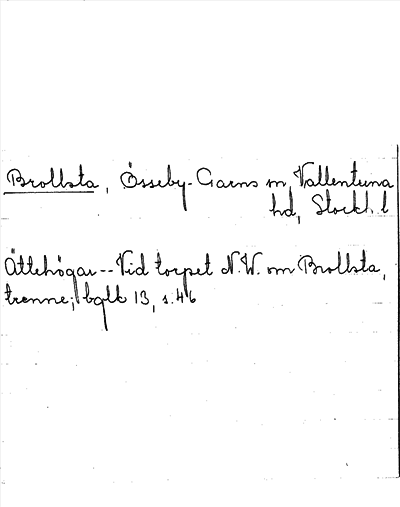 Brollsta, Össeby-Garns sn, Vallentuna
hd, Stockh. l
Ättehögar -- Vid torpet N.W. om Brollsta,
trenne; bglb 13, s. 46